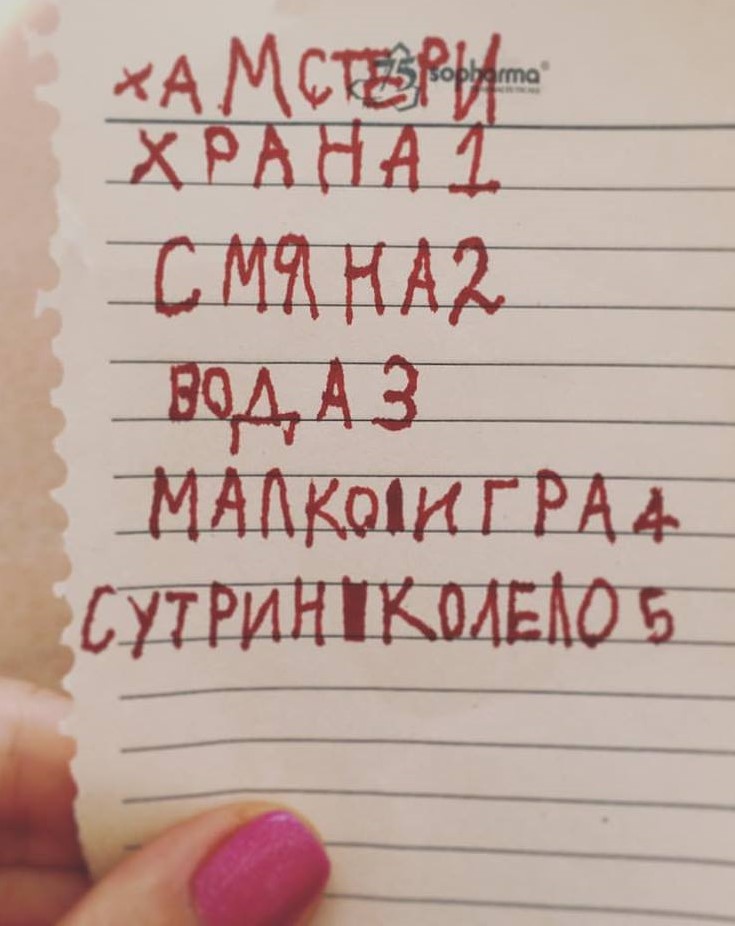 хАМСТЕРИ
75 sopharma
ХРАНА 1
СМЯНА 2
ВОДА 3
МАЛКО ИГРА 4
СУТРИН КОЛЕЛО 5